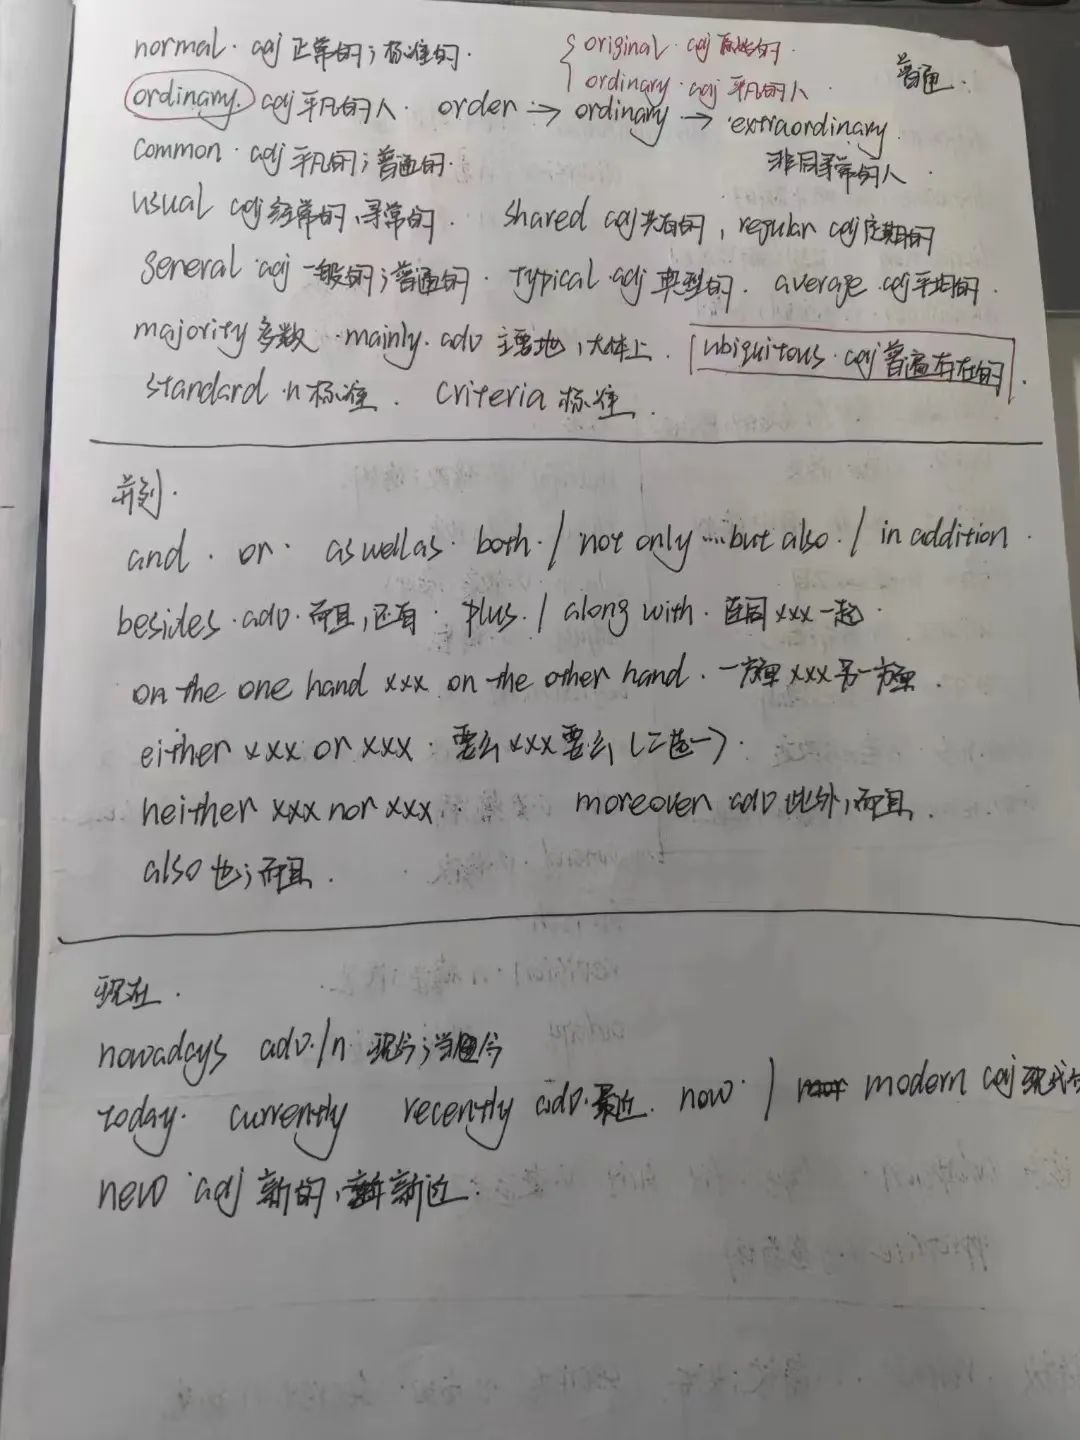 normal. adj 正常的；标准的.
{ original. adj 原始的.
ordinary. adj 平凡的人.
普通.
ordinary. adj 平凡的人. order → ordinary → extraordinary.
非同寻常的人.
common. adj 平凡的；普通的.
usual adj 经常的，寻常的. shared adj 共有的，regular adj 定期的
general. adj 一般的；普通的. typical. adj 典型的. average. adj 平均的.
majority 多数. mainly. adv 主要地，大体上. ubiquitous. adj 普遍存在的.
standard. n 标准. criteria 标准.
并列.
and. or. as well as. both. / not only ... but also. / in addition.
besides. adv. 而且，还有. plus. / along with. 连同 xxx 一起.
on the one hand xxx on the other hand. 一方面 xxx 另一方面.
either xxx or xxx. 要么 xxx 要么 (二选一).
neither xxx nor xxx. moreover adv 此外，而且.
also 也；而且.
现在.
nowadays adv./n 现今；当今
today. currently recently adv. 最近. now. / modern adj 现代
new adj 新的，新近.